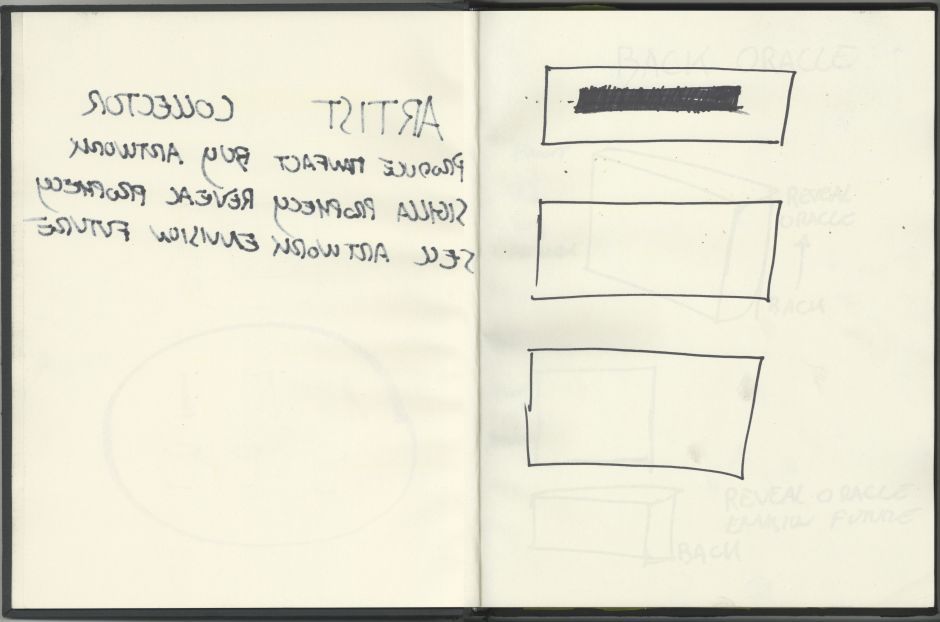 ARTIST COLLECTOR
PRODUCE BUY ARTWORK
SIGILLA PROPHECY REVEAL PROPHECY
SELL ARTWORK ENVISION FUTURE
BACK ORACLE
REVEAL
ORACLE
BACK
REVEAL ORACLE
ENVISION FUTURE
BACK